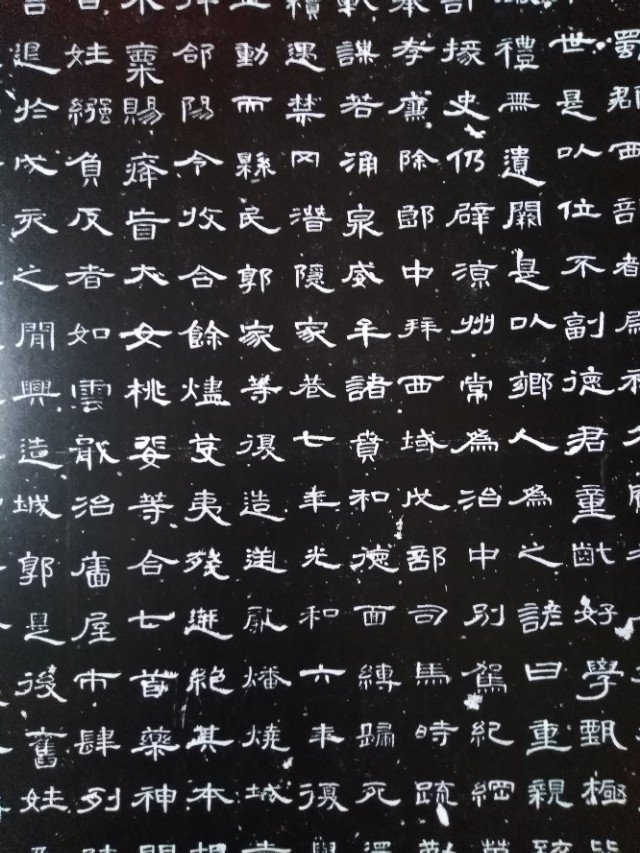 蜀郡西部都尉祖父
世是以位不副德君童齔好學甄極毖
禮無遺闕是以鄉人為之諺曰重親致
部掾史仍辟涼州常為治中別駕紀綱萬
舉孝廉除郎中拜西域戊部司馬時疏勒
謀若涌泉威牟諸賁和德面縛歸死還
續遇禁网潛隱家巷七年光和六年復舉
並動而縣民郭家等復造逆亂燔燒城寺
拜郃陽令收合餘燼芟夷殘迸絕其本根
米粟賜癃盲大女桃婓等合七首藥神明
百姓繦負反者如雲戢治廧屋市肆列陳
害退於戌亥之間興造城郭是後舊姓及